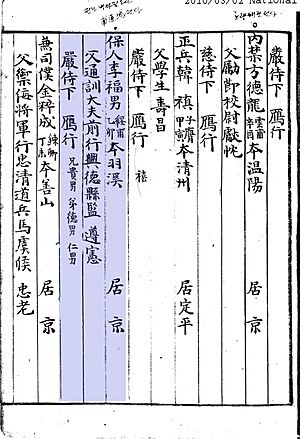 2010/03/02 National
嚴侍下 鴈行
內禁方德龍 本溫陽 居京
父勵節校尉獻忱
慈待下 鴈行
正兵韓禛 甲寅 本淸州 居定平
父學生壽昌
嚴待下 鴈行 禧
保人李福男 乙卯 本羽溪 居京
父通訓大夫前行興德縣監 遵憲
嚴侍下 鴈行 兄貴男 弟德男 仁男
兼司僕金粹成 丁未 本善山 居京
父禦侮將軍行忠淸道兵馬虞候 忠老